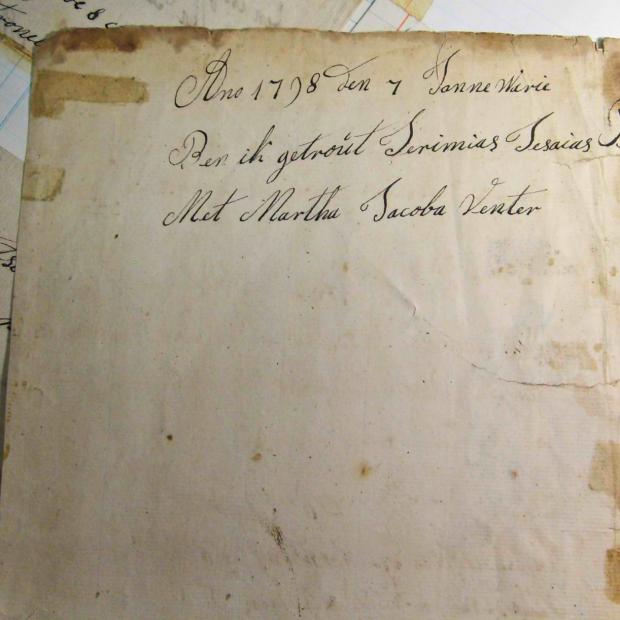 Ano 1798 den 7 Jannewarie
Ben ik getroút Jerimias Jesaias
Met Martha Jacoba Venter